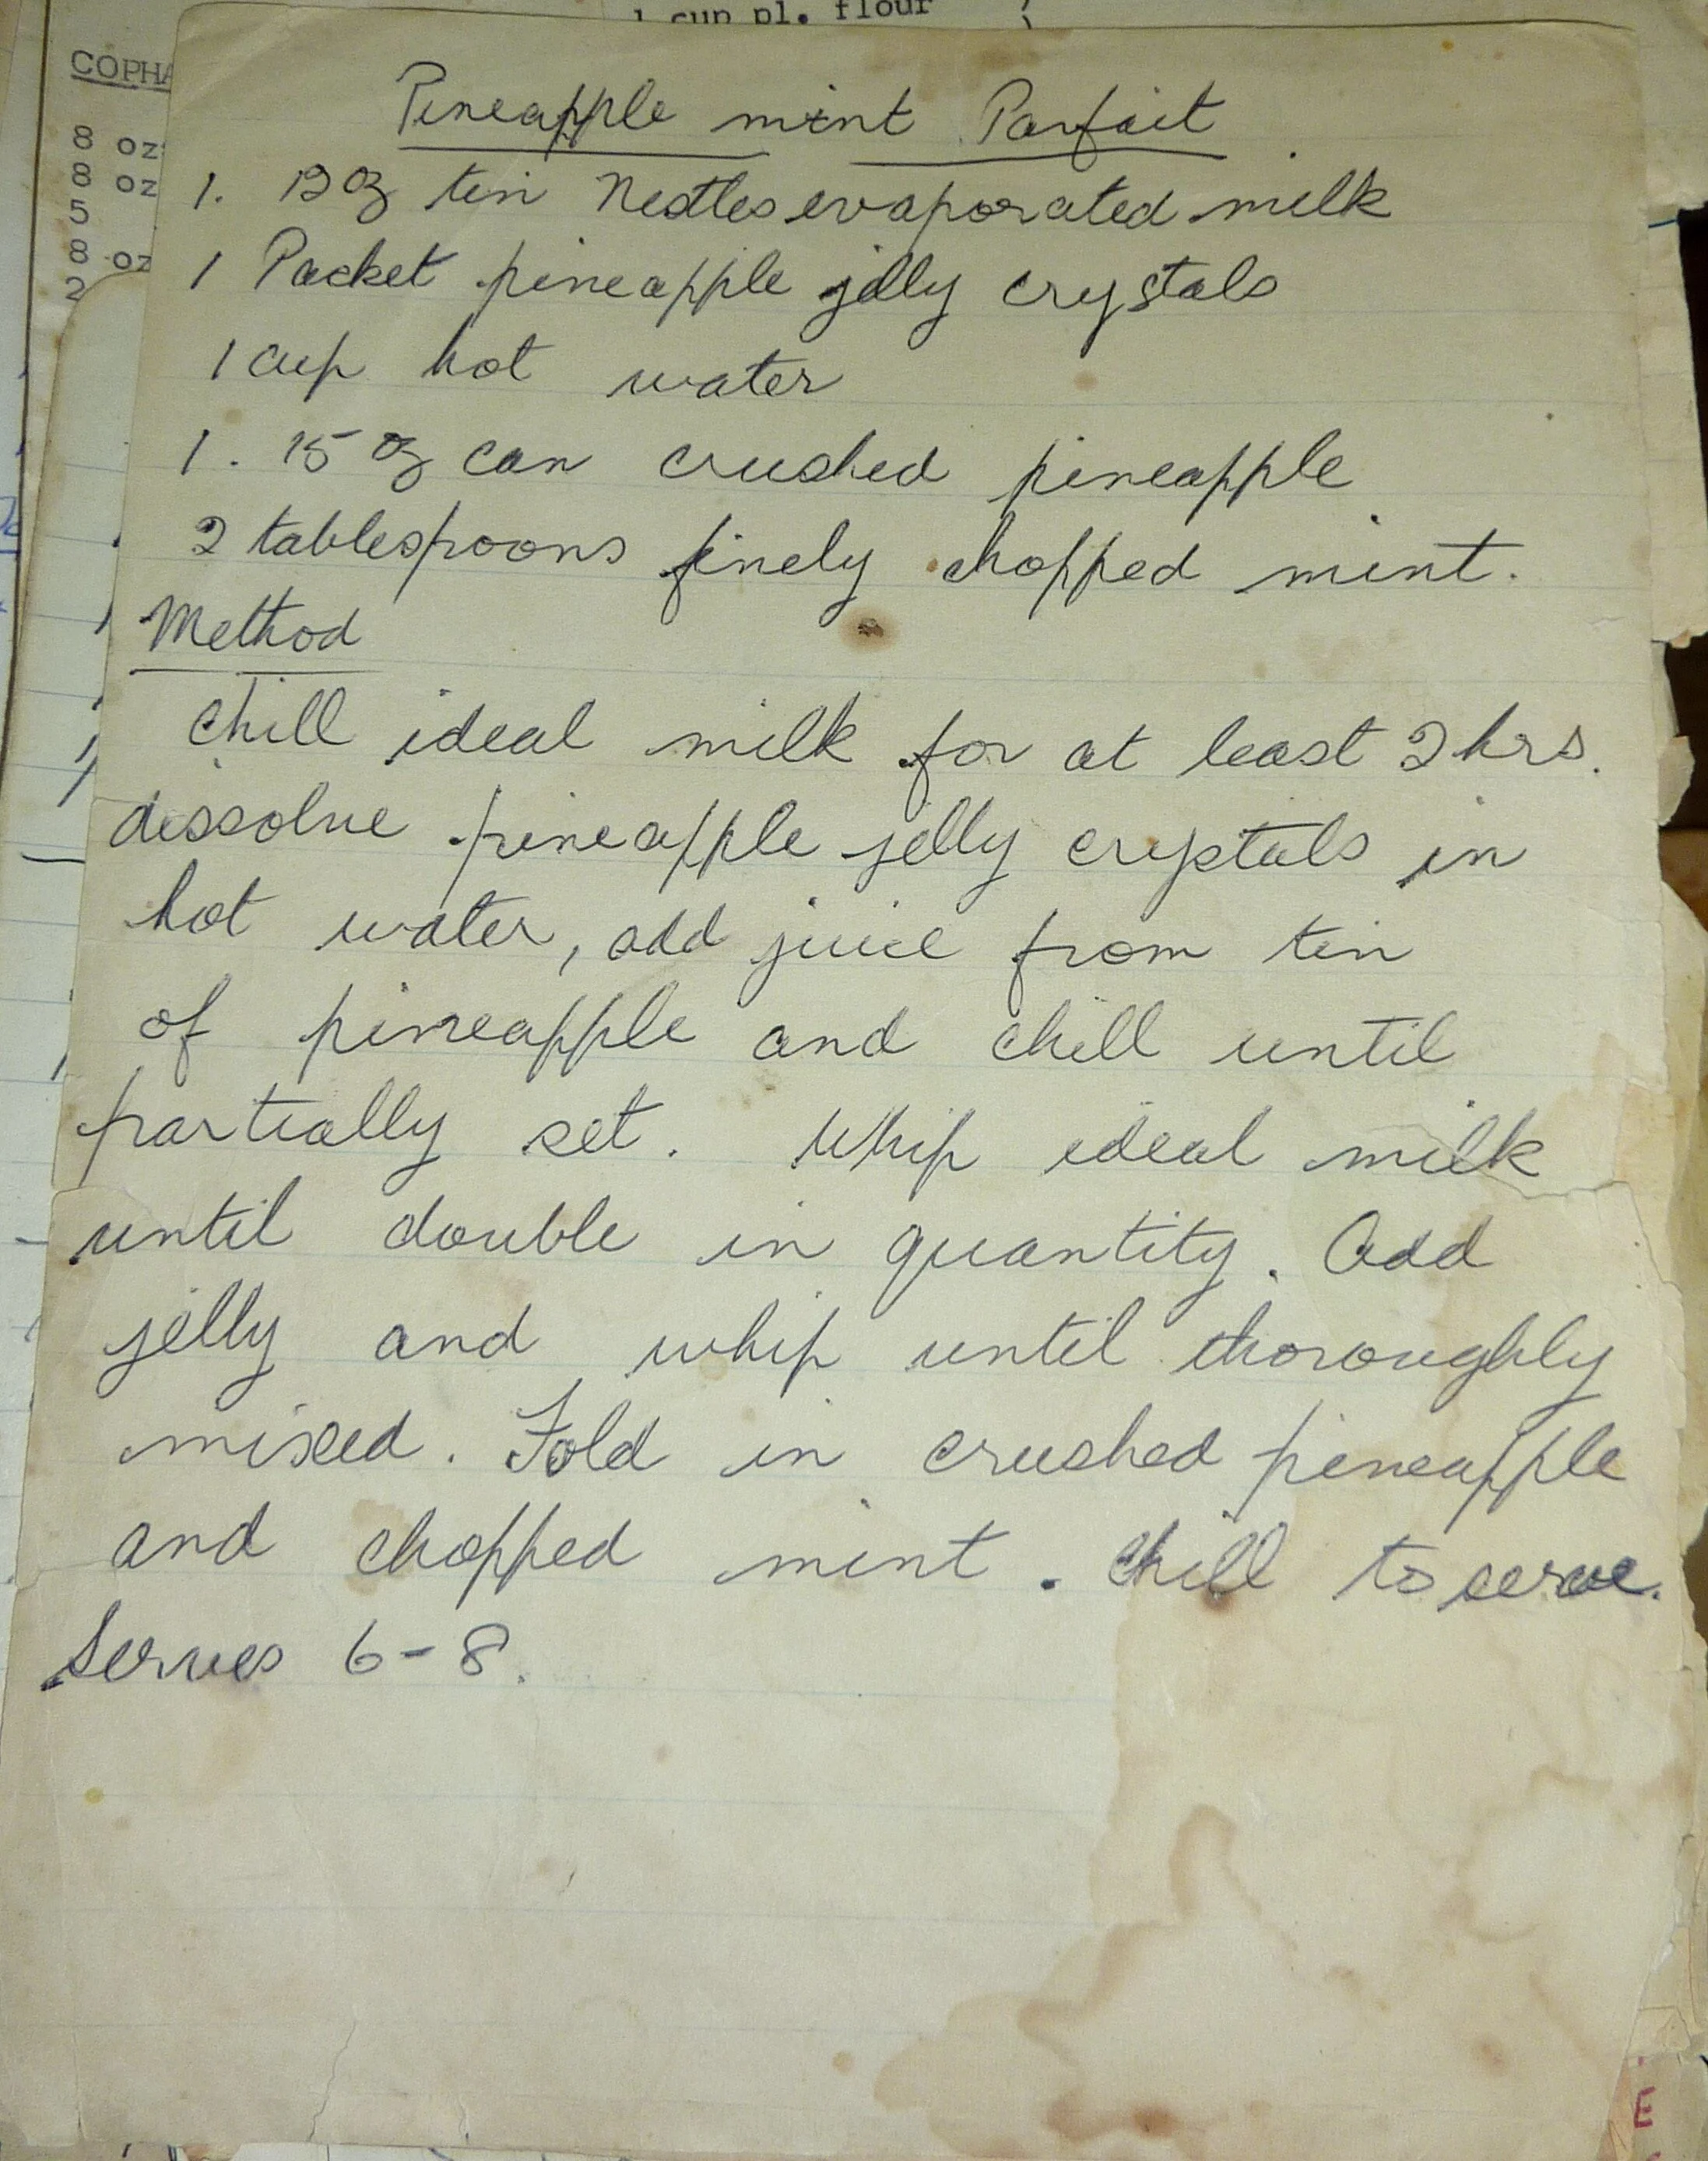 1 cup pl. flour
COPHA
8 oz
8 oz
5
8 oz
2
Pineapple mint Parfait
1. 12 oz tin Nestles evaporated milk
1 Packet pineapple jelly crystals
1 cup hot water
1. 15 oz can crushed pineapple
2 tablespoons finely chopped mint.
Method
Chill ideal milk for at least 2 hrs.
dissolve pineapple jelly crystals in
hot water, add juice from tin
of pineapple and chill until
partially set. Whip ideal milk
until double in quantity. Add
jelly and whip until thoroughly
mixed. Fold in crushed pineapple
and chopped mint. Chill to serve.
Serves 6-8.
E